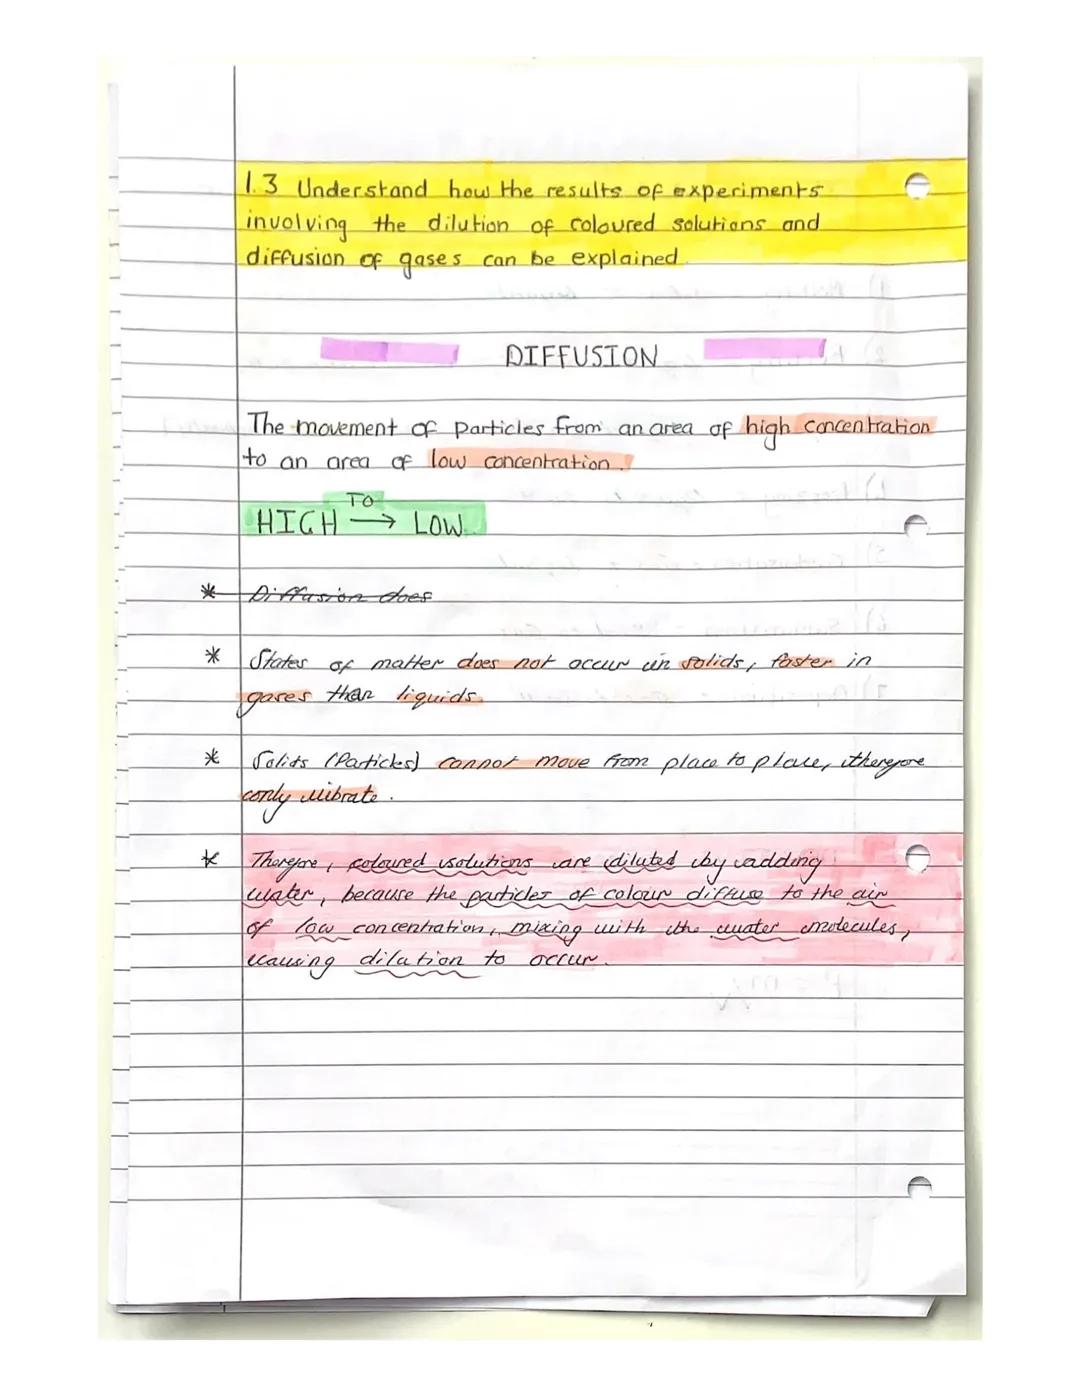 1.3 Understand how the results of experiments
involving the dilution of coloured solutions and
diffusion of gases can be explained.
DIFFUSION
The movement of particles from an area of high concentration
to an area of low concentration.
TO
HIGH → LOW.
* Diffusion does
* States of matter does not occur in solids, faster in
gases than liquids.
* Solids (Particles) cannot move from place to place, therefore
only vibrate.
* Therefore, coloured solutions are diluted by adding
water, because the particles of colour diffuse to the air
of low concentration, mixing with the water molecules,
causing dilation to occur.